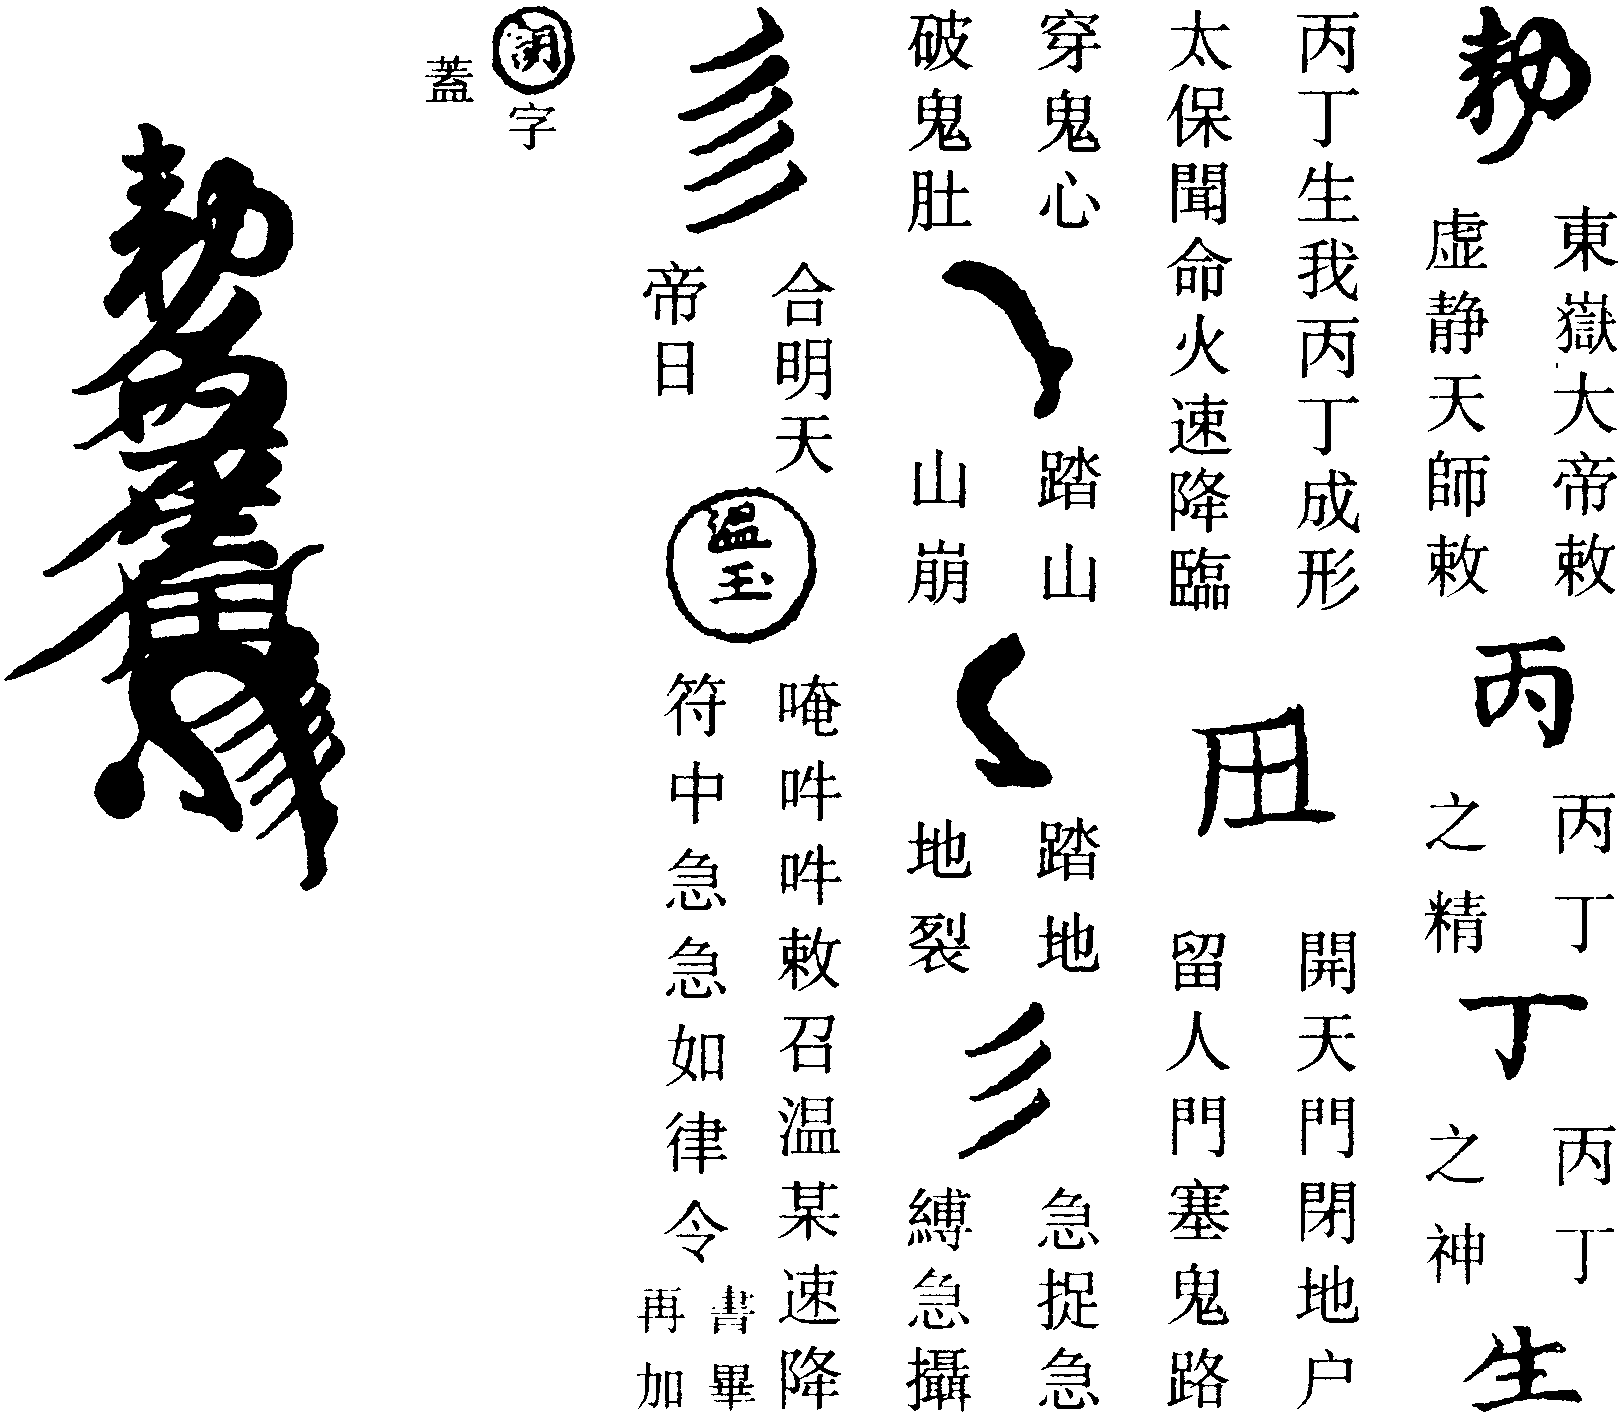 勅
東嶽大帝敕
虚静天師敕
丙
丙丁
之精
丁
丙丁
之神
生
丙丁生我丙丁成形
太保聞命火速降臨
開天門閉地户
留人門塞鬼路
穿鬼心
破鬼肚
踏山
山崩
踏地
地裂
急捉急
縛急攝
合明天
帝日
温玉
唵吽吽敕召温某速降
符中急急如律令
書畢
再加
字
蓋